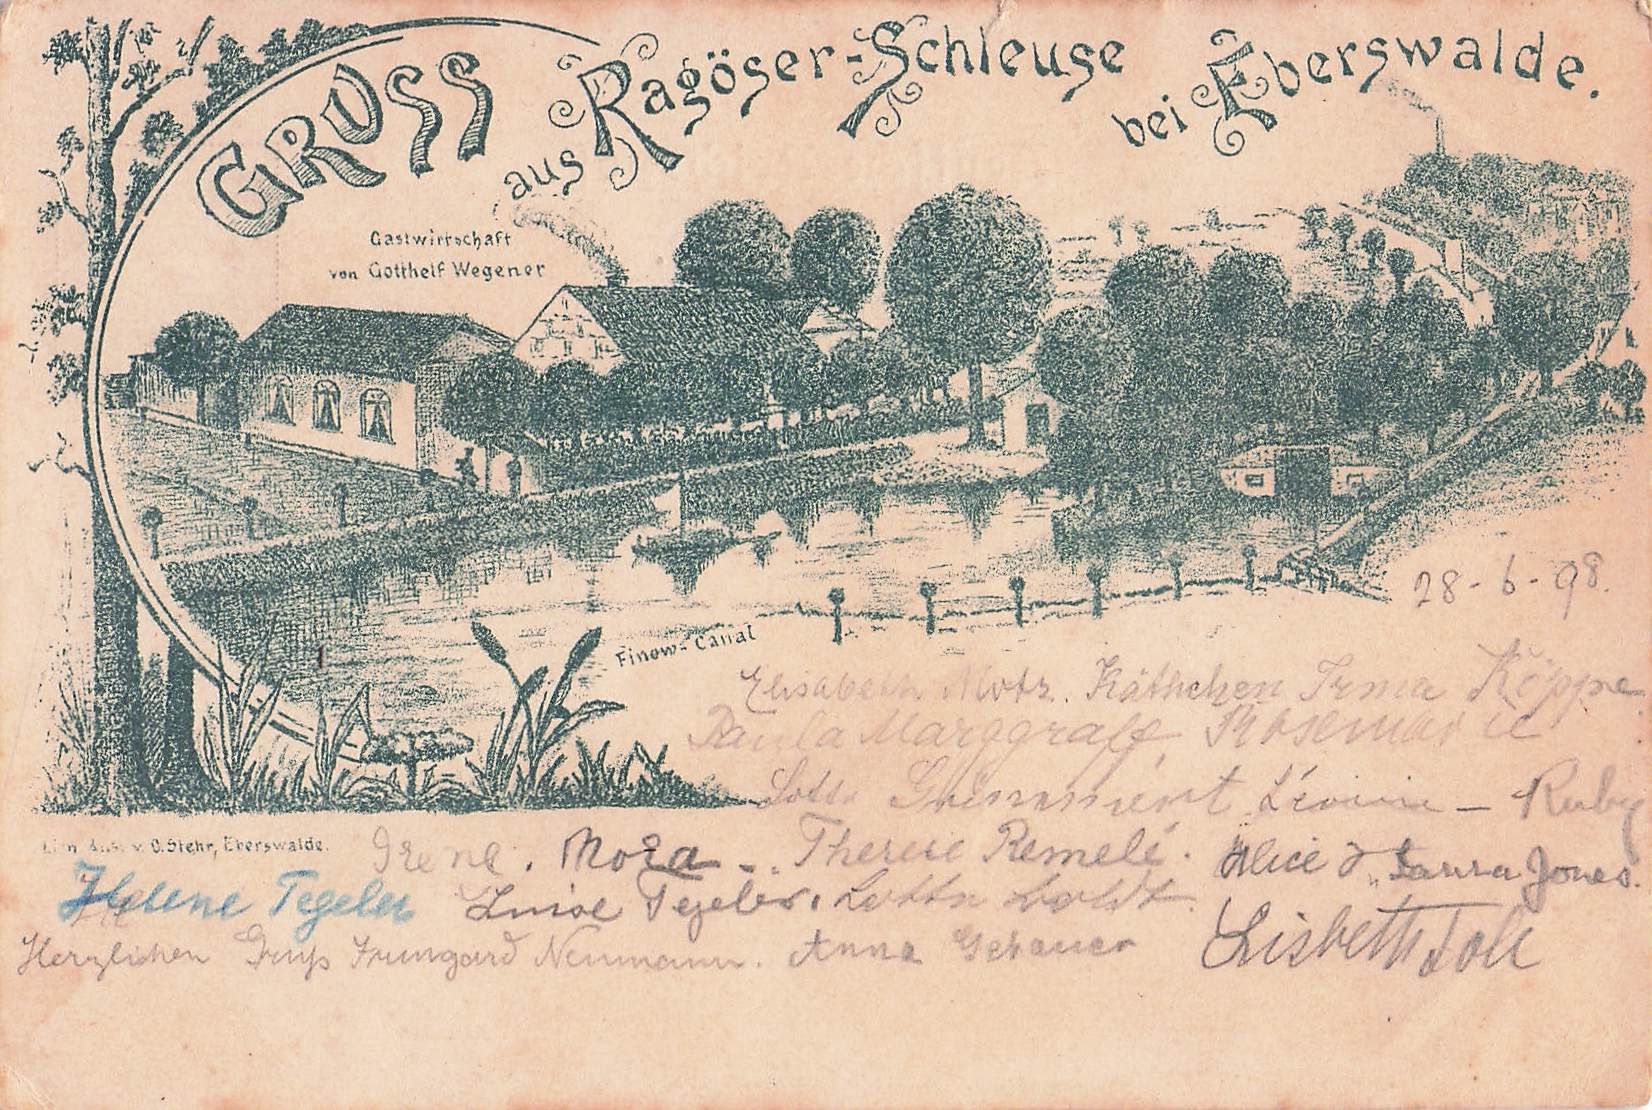 GRUSS
aus Ragöser-Schleuse
bei Eberswalde.
Gastwirtschaft
von Gotthelf Wegener
Finow-Canal
28-6-98.
Elisabeth Motz. Käthchen Irma Köppe
Paula Marggraff Rosemarie
Lotte Ruby
v. O. Stehr, Eberswalde.
Irene. Therese Remelé. Alice & Laura Jones.
Helene Tegeler Luise Tegeler. Lotte
Herzlichen Gruß Irmgard Neumann. Anna Gebauer Lisbeth